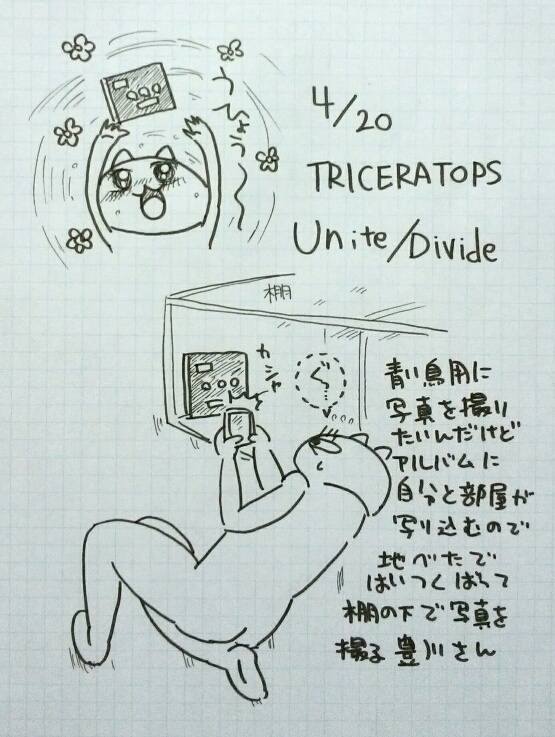 うひょう〜
4/20
TRICERATOPS
Unite/Divide
棚
カシャ
くっ
青い鳥用に
写真を撮り
たいんだけど
アルバムに
自分と部屋が
写り込むので
地べたで
はいつくばって
棚の下で写真を
撮る豊川さん